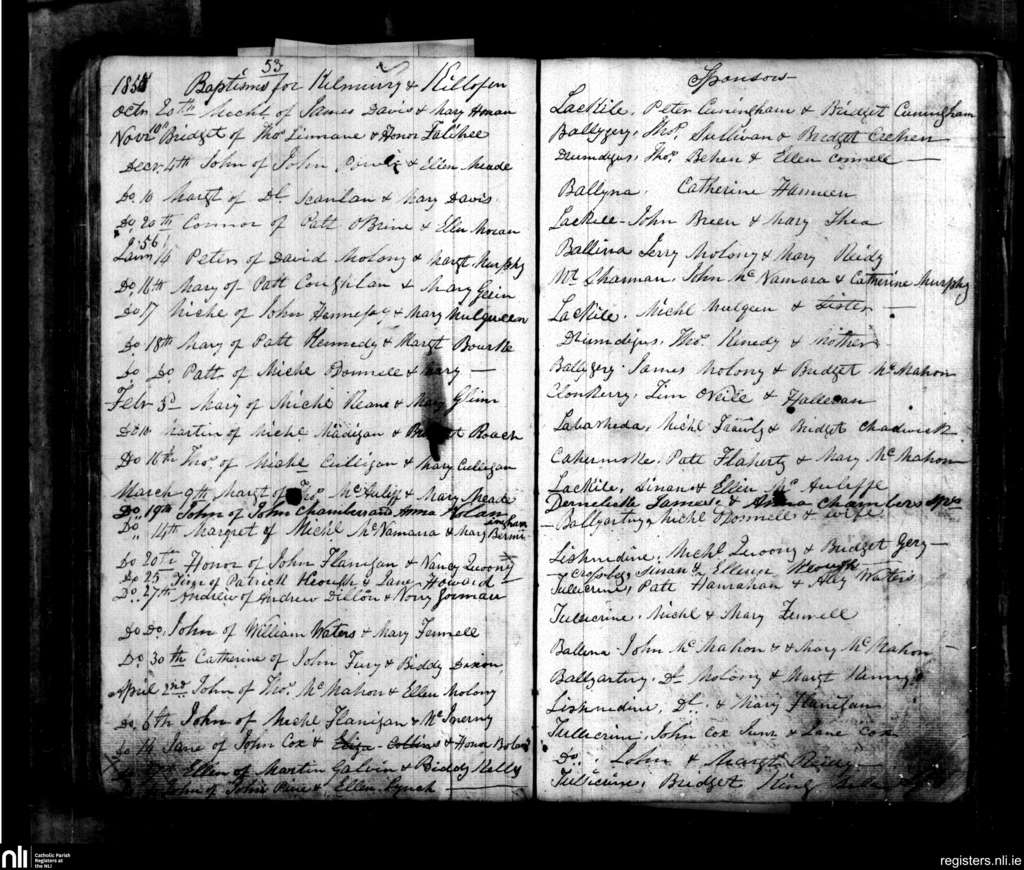 53
Baptisms for Kilmurry & Killofin
Octr 20th Michl of James Davis & Mary Honan
Novr 10th Bridget of Thos Linnane & Honor Falihee
Decr 4th John of John & Ellen Meade
Do 10 Margt of Dl Scanlan & Mary Davis
Do 20th Connor of Patt OBrine & Ellen Moran
J. 56
Jany 14 Peter of David Molony & Margt Murphy
Do 16th Mary of Patt Coughlan & Mary Gein
Do 17 Michl of John Hennessy & Mary Mulqueen
Do 18th Mary of Patt Kennedy & Margt Bourke
Do Do Patt of Michl Bonnell & Mary —
Febr 3d Mary of Michl Keane & Mary Glinn
Do 10 Martin of Michl Madigan & Roach
Do 16th Thos of Michl Culligan & Mary Culligan
March 9th Margt of Thos McAuliff & Mary Meade
Do 19th John of John Chambers and Anna Nolan
Do 14th Margret of Michl McNamara & Mary Bermingham
Do 20th Honor of John Flanigan & Nancy Queony
Do 25 of Patrick Heough & Jane Howard —
Do 27th Andrew of Andrew Dillon & Nory Gorman
Do Do, John of William Waters & Mary Fennell
Do 30th Catherine of John Fury & Biddy Dixon
April 2nd John of Thos McMahon & Ellen Molony
Do 6th John of Michl Flanigan & McInerny
Do 14 Jane of John Cox & Eliza Collins & Honor Boland
Ellen of Martin Galvin & Biddy Kelly
John of John & Ellen Lynch —
Sponsors
Lackile, Peter Cuningham & Bridget Cuningham
Ballygery, Thos Sullivan & Bridget Crehen
Drumdigus, Thos Behen & Ellen Connell —
Ballyna, Catherine Hanneen
Lackile - John Breen & Mary Shea
Ballina Jerry Molony & Mary Reidy
Mt Sharman, John McNamara & Catherine Murphy
Lackile, Michl Mulqeen & Sister —
Drumdigus, Thos Kinedy & Mother
Ballygery James Molony & Bridget McMahon
Clonkerry, Tim ONeile & Halleran
Labasheda, Michl & Bridget Chadwick
Cahermoke, Patt Flaherty & Mary McMahon
Lackile, Sinan & Ellen McAuliffe
James & Anna Chambers
Ballyartny, Michl ODonnell & wife
Lisknedine, Michl Queony & Bridget Gery —
Sinan & Ellenn Keough
Tullicrine, Patt Hanrahan & Ally Waters
Tullicrine, Michl & Mary Funnell
Ballena John McMahon & Mary McMahon
Ballyartny, Dl Molony & Margt
Lisknedine, Dl & Mary Flanigan
Tullicrine, John Cox Junr & Jane Cox
Do, John & Margt Reidy
Tullicrine, Bridget King
nli
Catholic Parish
Registers at
the NLI
registers.nli.ie